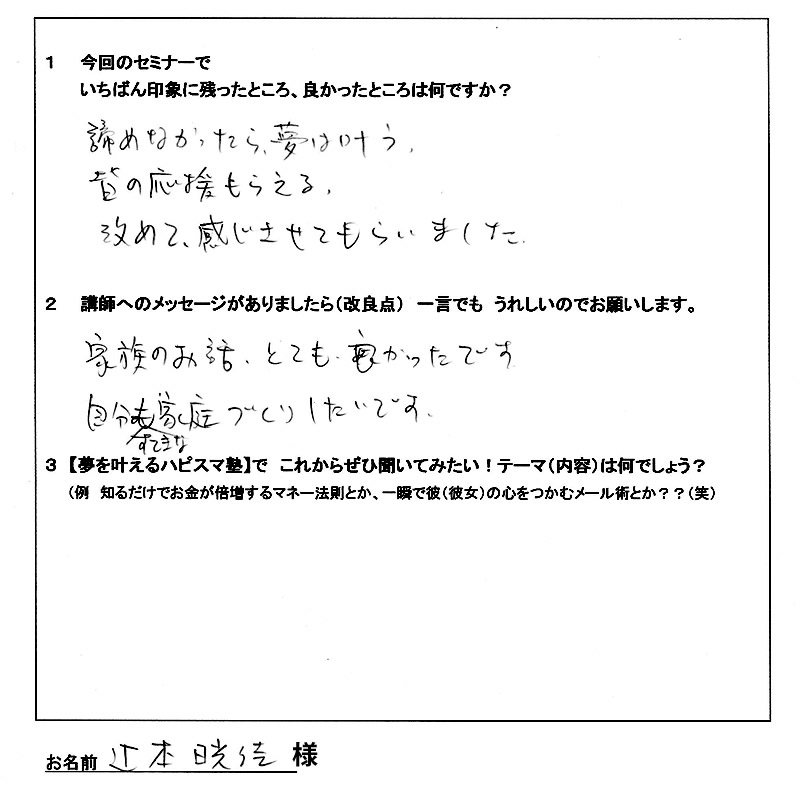 1 今回のセミナーで
いちばん印象に残ったところ、良かったところは何ですか？
諦めなかったら、夢は叶う。
皆の応援もらえる。
改めて、感じさせてもらいました。
2 講師へのメッセージがありましたら（改良点） 一言でも うれしいのでお願いします。
家族のお話、とても良かったです
自分もすてきな家庭づくりしたいです。
3 【夢を叶えるハピスマ塾】で これからぜひ聞いてみたい！テーマ（内容）は何でしょう？
（例 知るだけでお金が倍増するマネー法則とか、一瞬で彼（彼女）の心をつかむメール術とか？？（笑）
お名前 辻本 晄佳 様